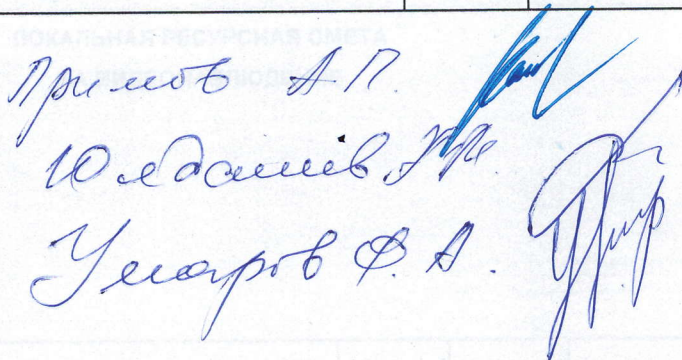 ЛОКАЛЬНАЯ РЕСУРСНАЯ СМЕТА
Примов А.П.
Юлдашев
Умаров Ф.А.